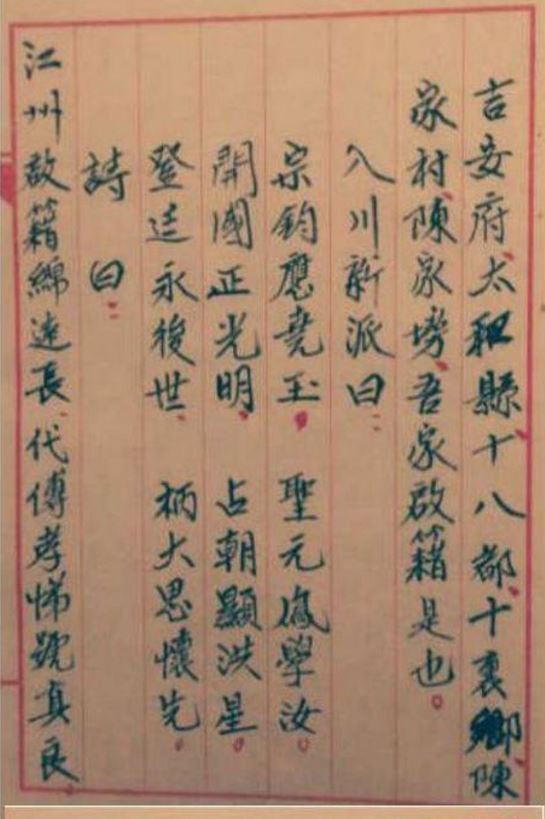 吉安府、太和縣、十八都、十裏鄉、陳
家村、陳家塝、吾家啟籍是也。
入川新派曰：
宗鈞應堯玉，聖元俊學汝。
開國正光明、占朝顯洪星。
登廷永後世、柄大思懷先。
詩曰：
江州啟籍綿遠長、代傳孝悌號真良.